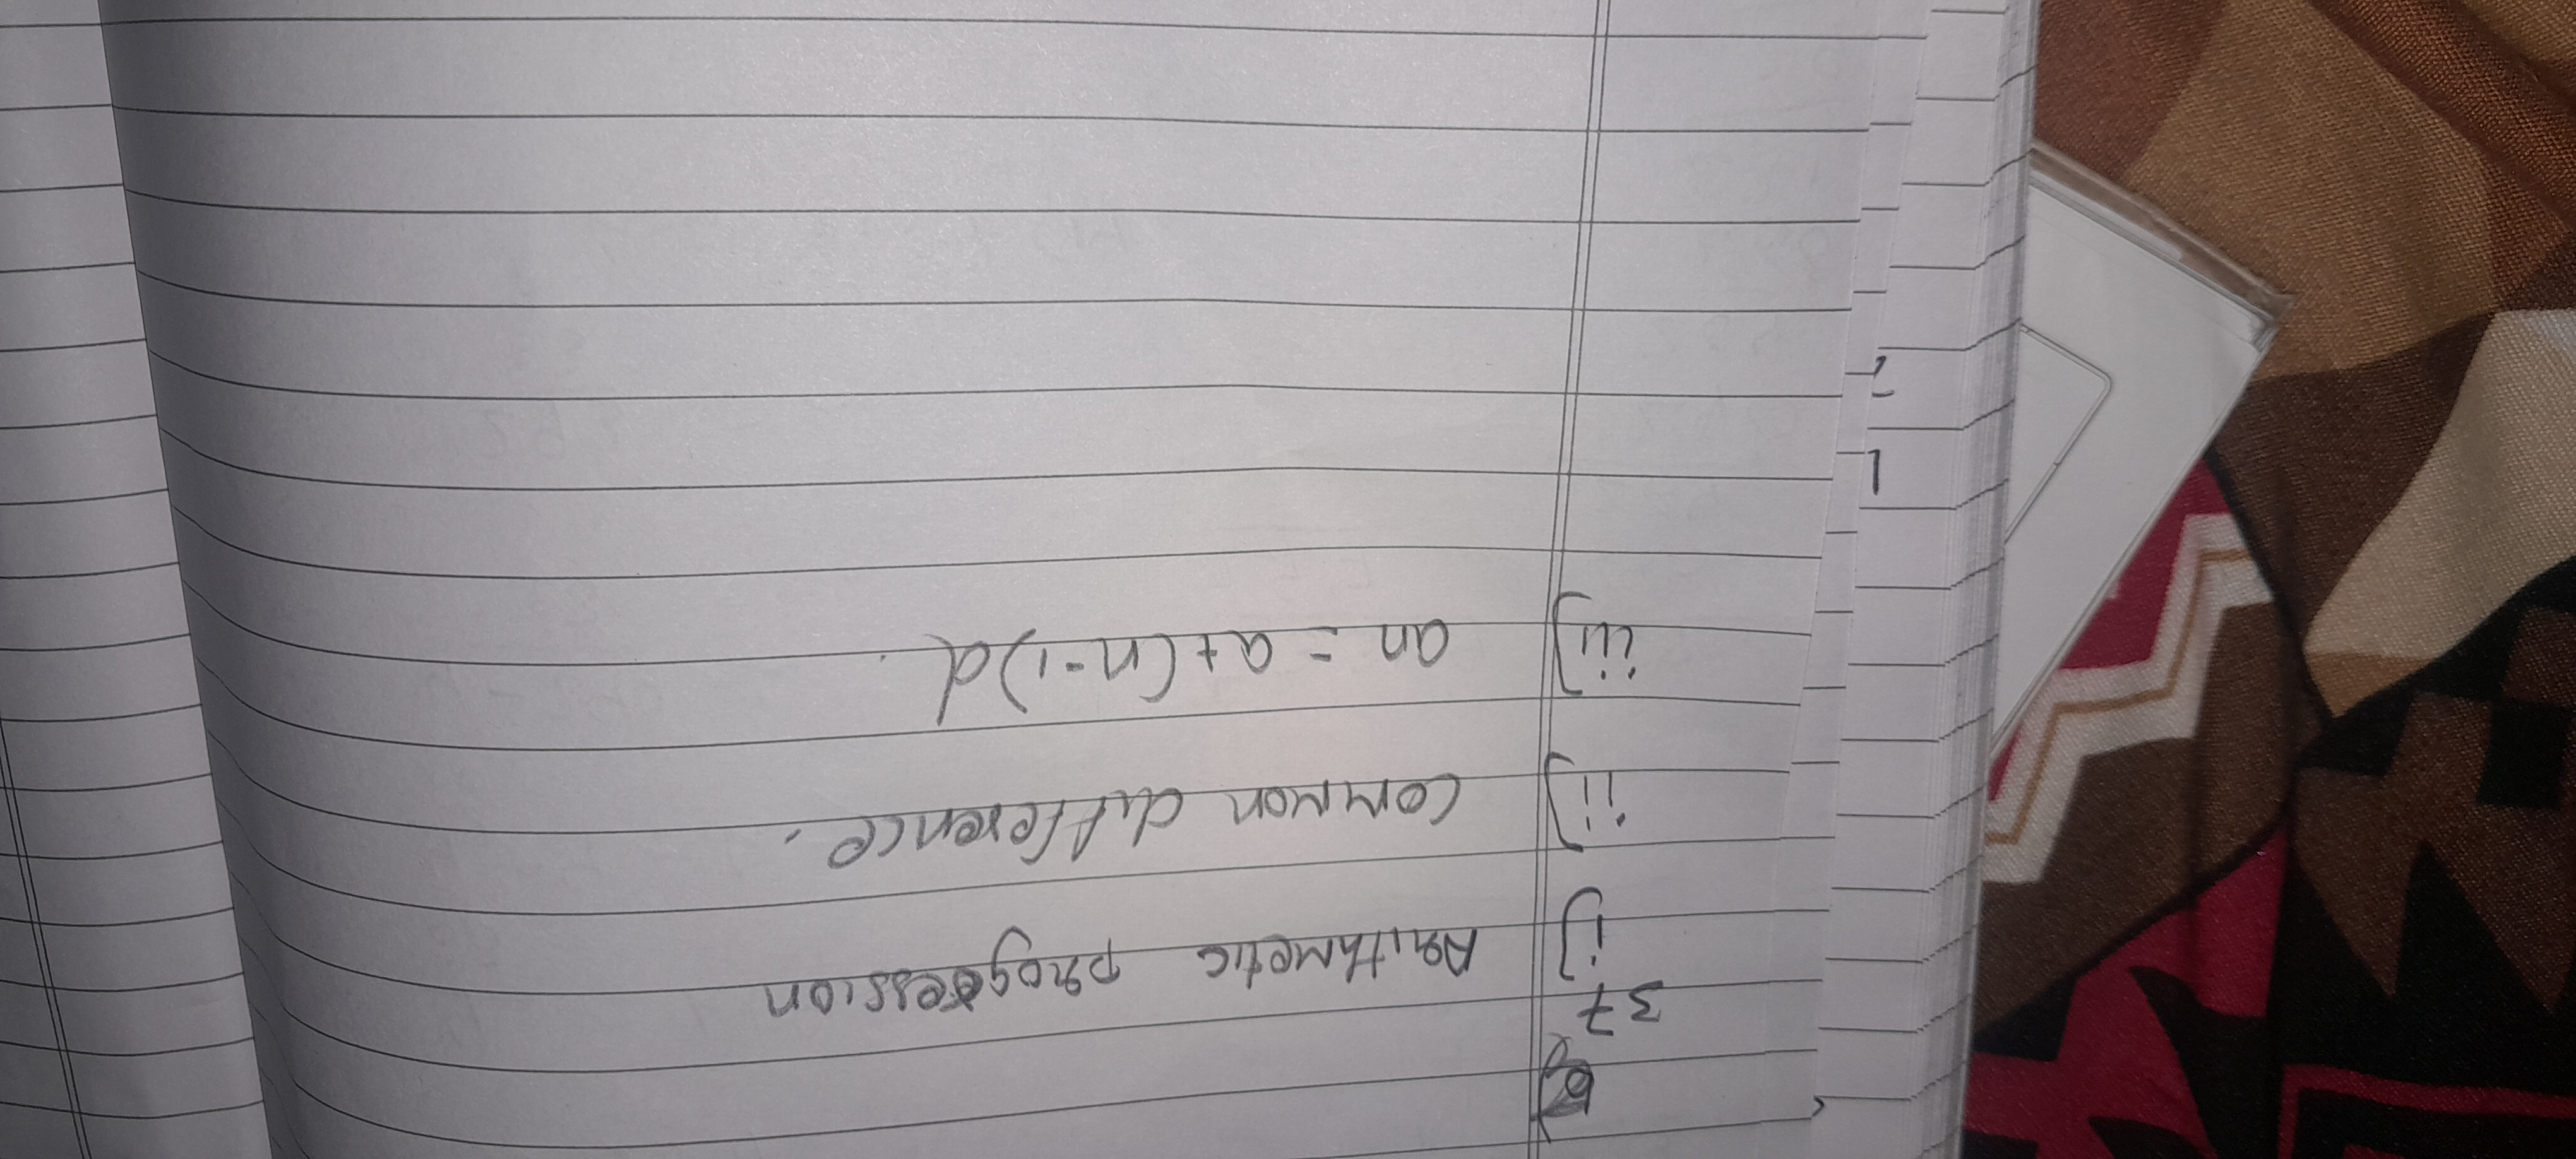 37
i) Arithmetic progression
ii) common difference.
iii) an = a+(n-1)d.
1
2